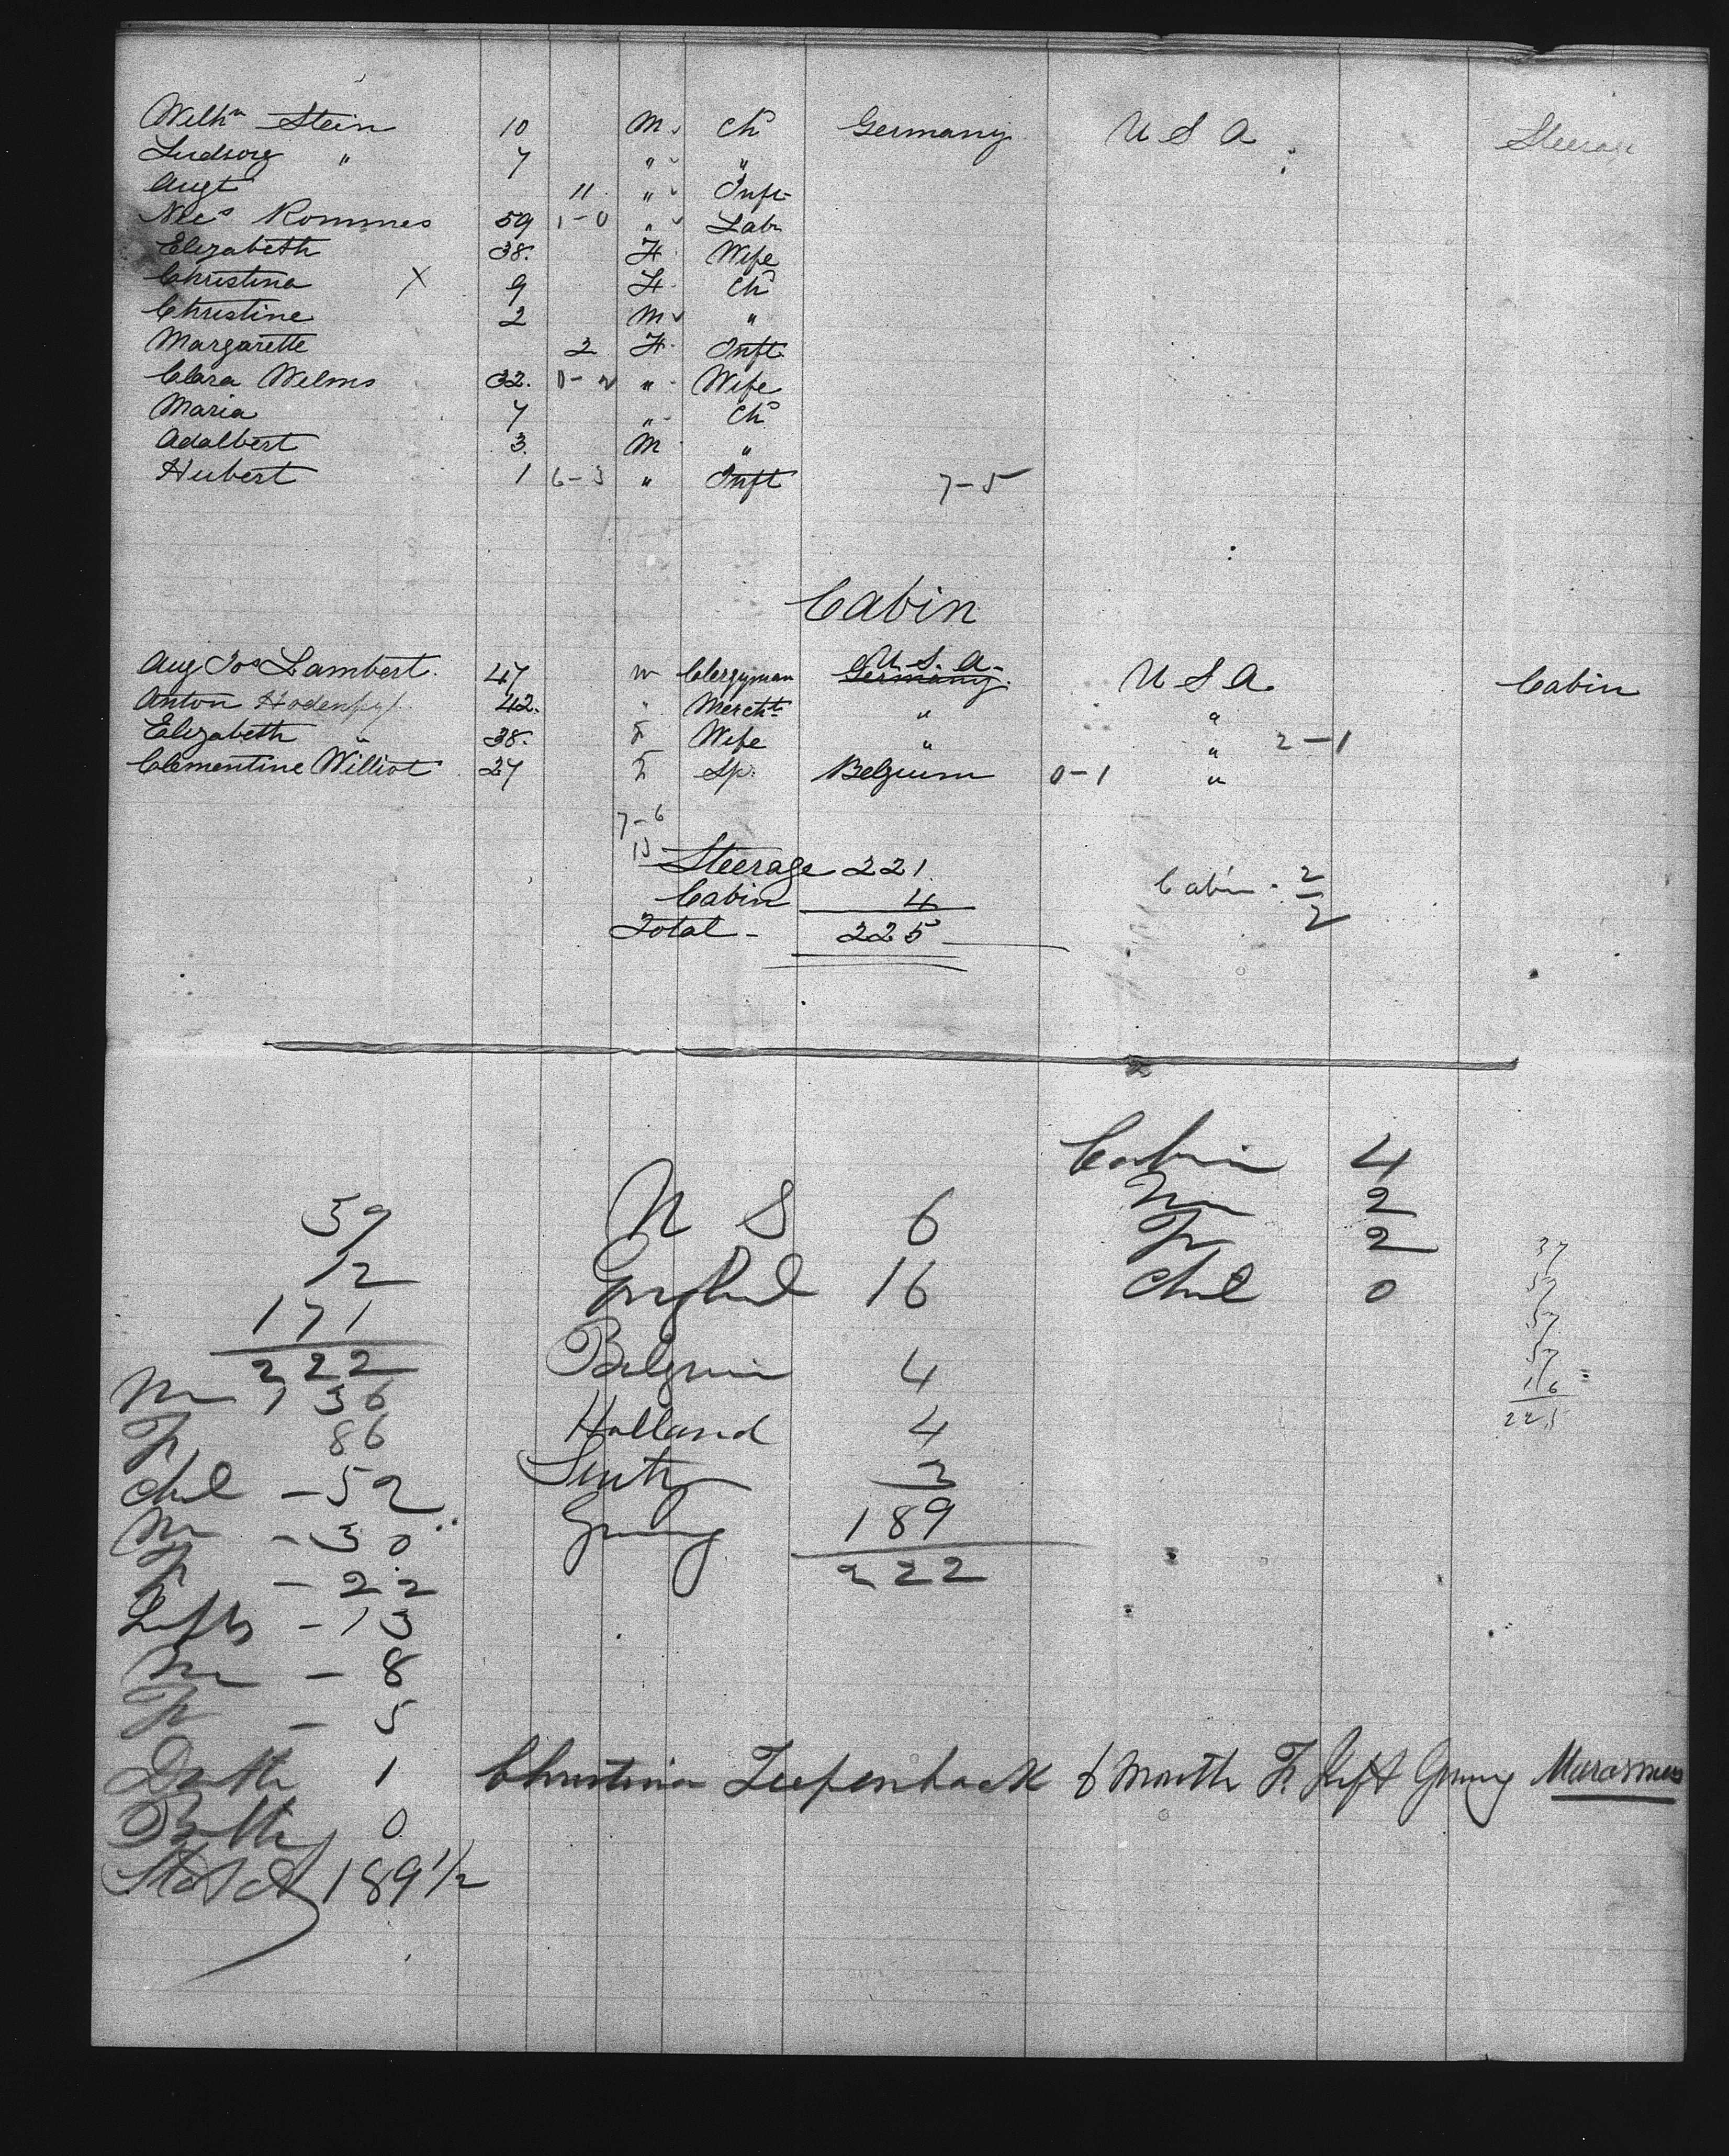 Welhm Stein 10 M Chd Germany U S A Steerage
Ludwig " 7 " "
Augt 11 " Inft
Nics Rommes 59 1-0 " Labr
Elizabeth 38. F Wife
Christina X 9 F Chd
Christine 2 M "
Margarette 2 F Inft
Clara Welms 32. " Wife
Maria 7 " Chd
Adalbert 3. M "
Hubert 1 6-3 " Inft 7-5
Cabin
U.S.A.
Aug Jos Lambert. 47 m Clergyman Germany. U S A. Cabin
Anton 42. " Mercht " "
Elizabeth " 38. F Wife " " 2-1
Clementine Williot 27 F Sp. Belgium 0-1 "
7-6
Steerage 221.
Cabin 4
Total - 225
Cabin - 2
2
Cabin 4
M 2
F 2
Chd 0
59
12
171
222
M 136
F 86
Chd - 52
M - 30
F - 22
Infts - 13
M - 8
F - 5
Death 1
Births 0
189 1/2
U S 6
England 16
Belgium 4
Holland 4
3
Germy 189
222
37
57
57
57
16
225
Christina 6 Month F Inft Germy Marasmus